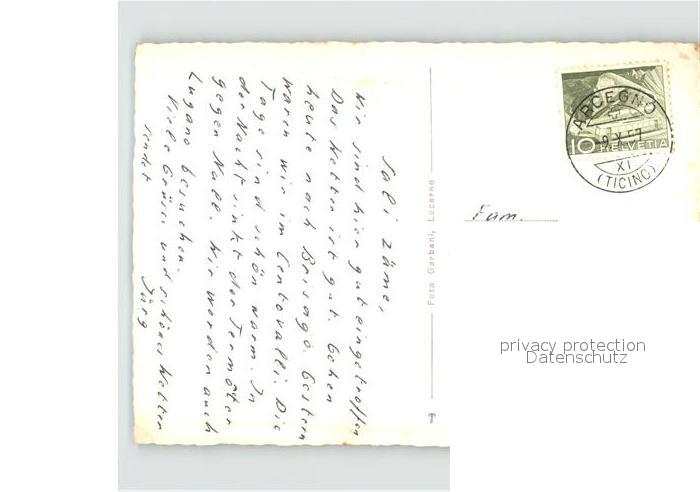 Sali zäme,
Wir sind hier gut eingetroffen
Das Wetter ist gut. Gehen
heute nach Brisago. Gestern
waren wir im Centovalli. Die
Tage sind schön warm. In
der Nacht sinkt der Termöter
gegen Null. Wir werden auch
Lugano besuchen.
Viele Grüsse und schönes Wetter
sendet
Jürg
Foto Garbani, Locarno
ARCEGNO
9.X.57
XI
(TICINO)
10 HELVETIA
Fam.
privacy protection
Datenschutz